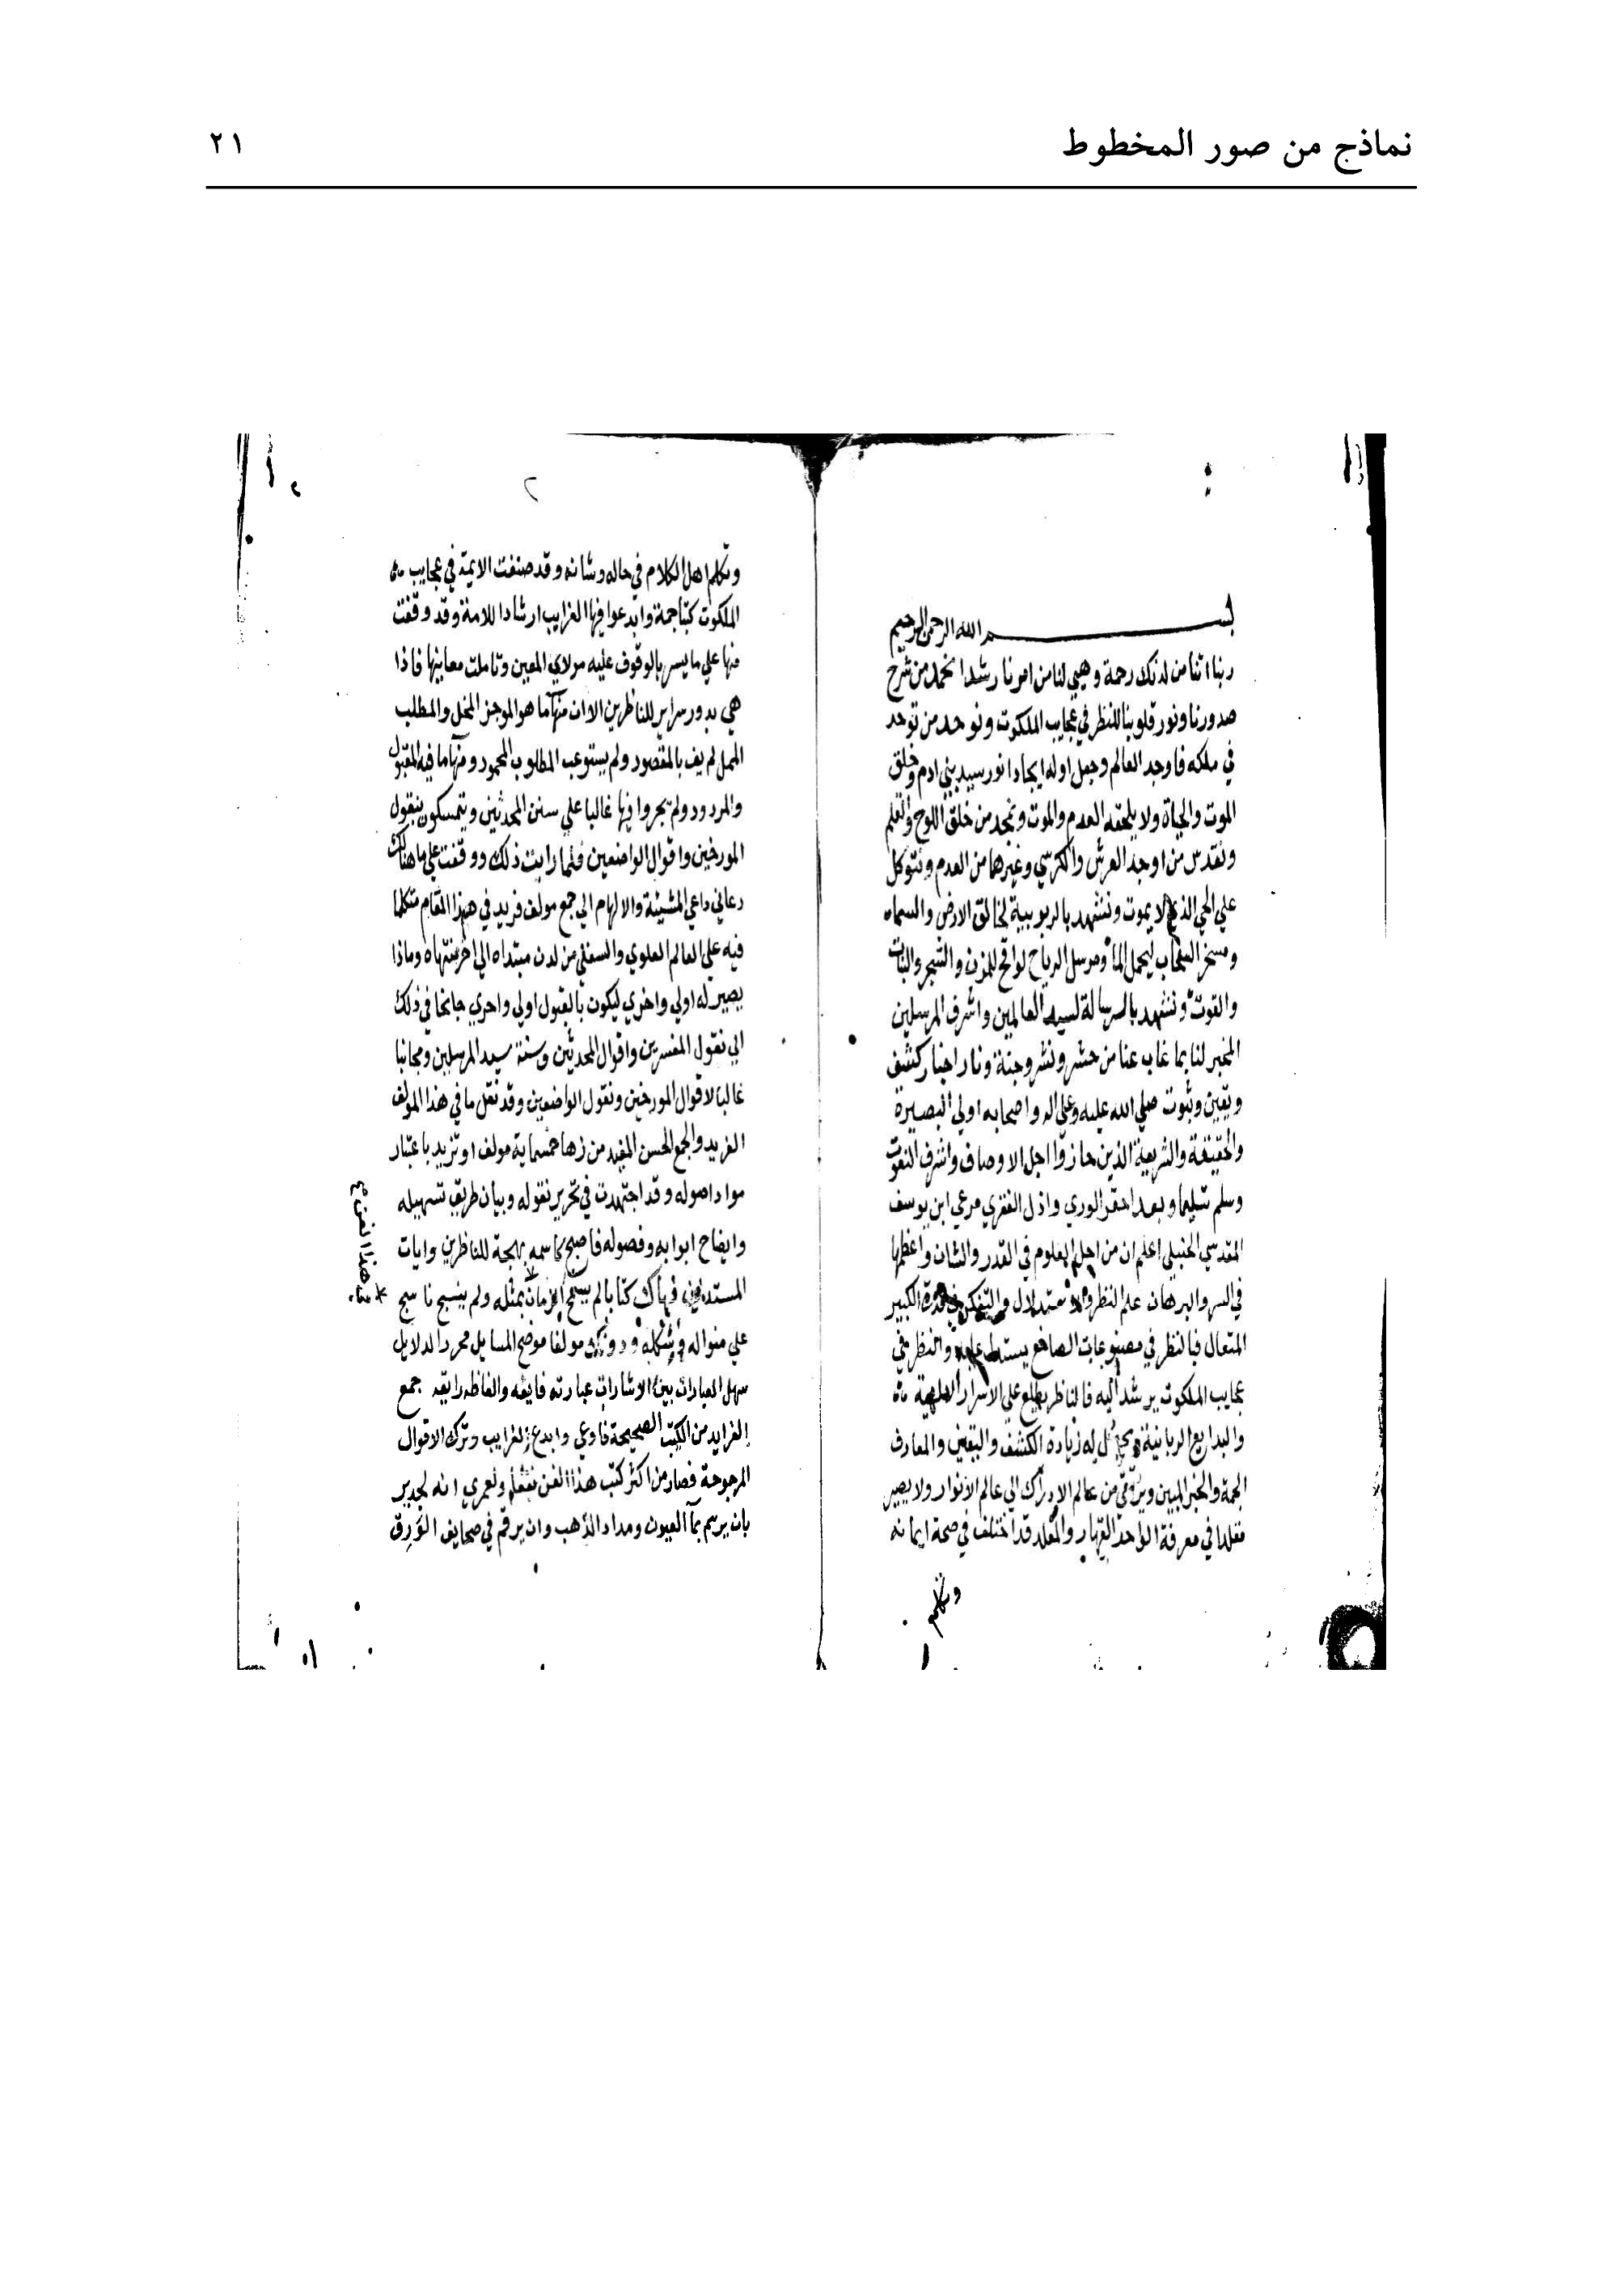 نماذج من صور المخطوط
٢١
بسم الله الرحمن الرحيم
ربنا اتنا من لدنك رحمة وهيي لنا من امرنا رشدا نحمد من شرح
صدورنا ونور قلوبنا للنظر في عجايب الملكوت ونوحد من توحد
في ملكه فاوجد العالم وجعل اوله ايجادا نور سيد بني ادم وخلق
الموت والحياة ولا يلحقه العدم والموت ونمجد من خلق اللوح والقلم
ونقدس من اوجد العرش والكرسي وغيرها من العدم ونتوكل
علي الحي الذي لا يموت ونشهد بالربوبية لخالق الارض والسماء
ومسخر السحاب ليحمل الماء ومرسل الرياح لواقح للمزن والشجر والنبات
والقوت ونشهد بالرسالة لسيد العالمين واشرف المرسلين
المخبر لنا بما غاب عنا من حشر ونشر وجنة ونار اخبار كشف
ويقين وثبوت صلي الله عليه وعلي اله واصحابه اولي البصيرة
والحقيقة والشريعة الذين حازوا اجل الاوصاف واشرف النعوت
وسلم تسليما وبعد احقر الوري واذل الفقري مرعي ابن يوسف
المقدسي الحنبلي اعلم ان من اجل العلوم في القدر والشان واعظمها
في السر والبرهان علم النظر والاستدلال والتفكر في قدرة الكبير
المتعال فبالنظر في مصنوعات الصانع يستدل عليه والنظر في
عجايب الملكوت يرشد اليه فالناظر يطلع علي الاسرار الالهية
والبدايع الربانية ويحصل له زيادة الكشف واليقين والمعارف
الجمة والخبر المبين ويترقي من عالم الادراك الي عالم الانوار ولا يصير
مقلدا في معرفة الواحد القهار والمقلد قد اختلف في صحة ايمانه
وتكلم
٢
وتكلم اهل الكلام في حاله وشانه وقد صنفت الايمة في عجايب
الملكوت كتبا جمة وابدعوا فيها الغرايب ارشادا للامة وقد وقفت
منها علي ما يسر بالوقوف عليه مولاي المعين وتاملت معانيها فاذا
هي بدور سراير للناظرين الا ان منها ما هو الموجز المخل والمطلب
الممل لم يف بالمقصود ولم يستوعب المطلوب المحمود ومنها ما فيه المقبول
والمردود ولم يجروا فيها غالبا علي سنن المحدثين ويتمسكون بنقول
المورخين واقوال الواضعين فلما رايت ذلك ووقفت علي ما هنالك
دعاني داعي المشيئة والالهام الي جمع مولف فريد في هذا المقام متكلما
فيه علي العالم العلوي والسفلي من لدن مبتداه الي اخر منتهاه وماذا
يصير له اولي واخري ليكون بالقبول اولي واحري جانحا في ذلك
الي نقول المفسرين واقوال المحدثين وسنة سيد المرسلين ومجانبا
غالبا لاقوال المورخين ونقول الواضعين وقد نقل ما في هذا المولف
الفريد والجمع الحسن المفيد من زها خمسماية مولف او تزيد باعتبار
مواد اصوله وقد اجتهدت في تحرير نقوله وبيان طريق تسهيله
وايضاح ابوابه وفصوله فاصبح كاسمه بهجة للناظرين وايات
المستدلين فهاك كتابا لم يسمح الزمان بمثله ولم ينسج ناسج
علي منواله وشكله ودونك مولفا موضح المسايل محرر الدلايل
سهل العبارات بين الاشارات عبارته فايقه والفاظه رايقه جمع
الفرايد من الكتب الصحيحة فاوعي وابدع الغرايب وترك الاقوال
المرجوحة فصار من اكثر كتب هذا الفن ولعمري انه لجدير
بان يرسم بماء العيون ومداد الذهب وان يرقم في صحايف الورق
هذا الفن